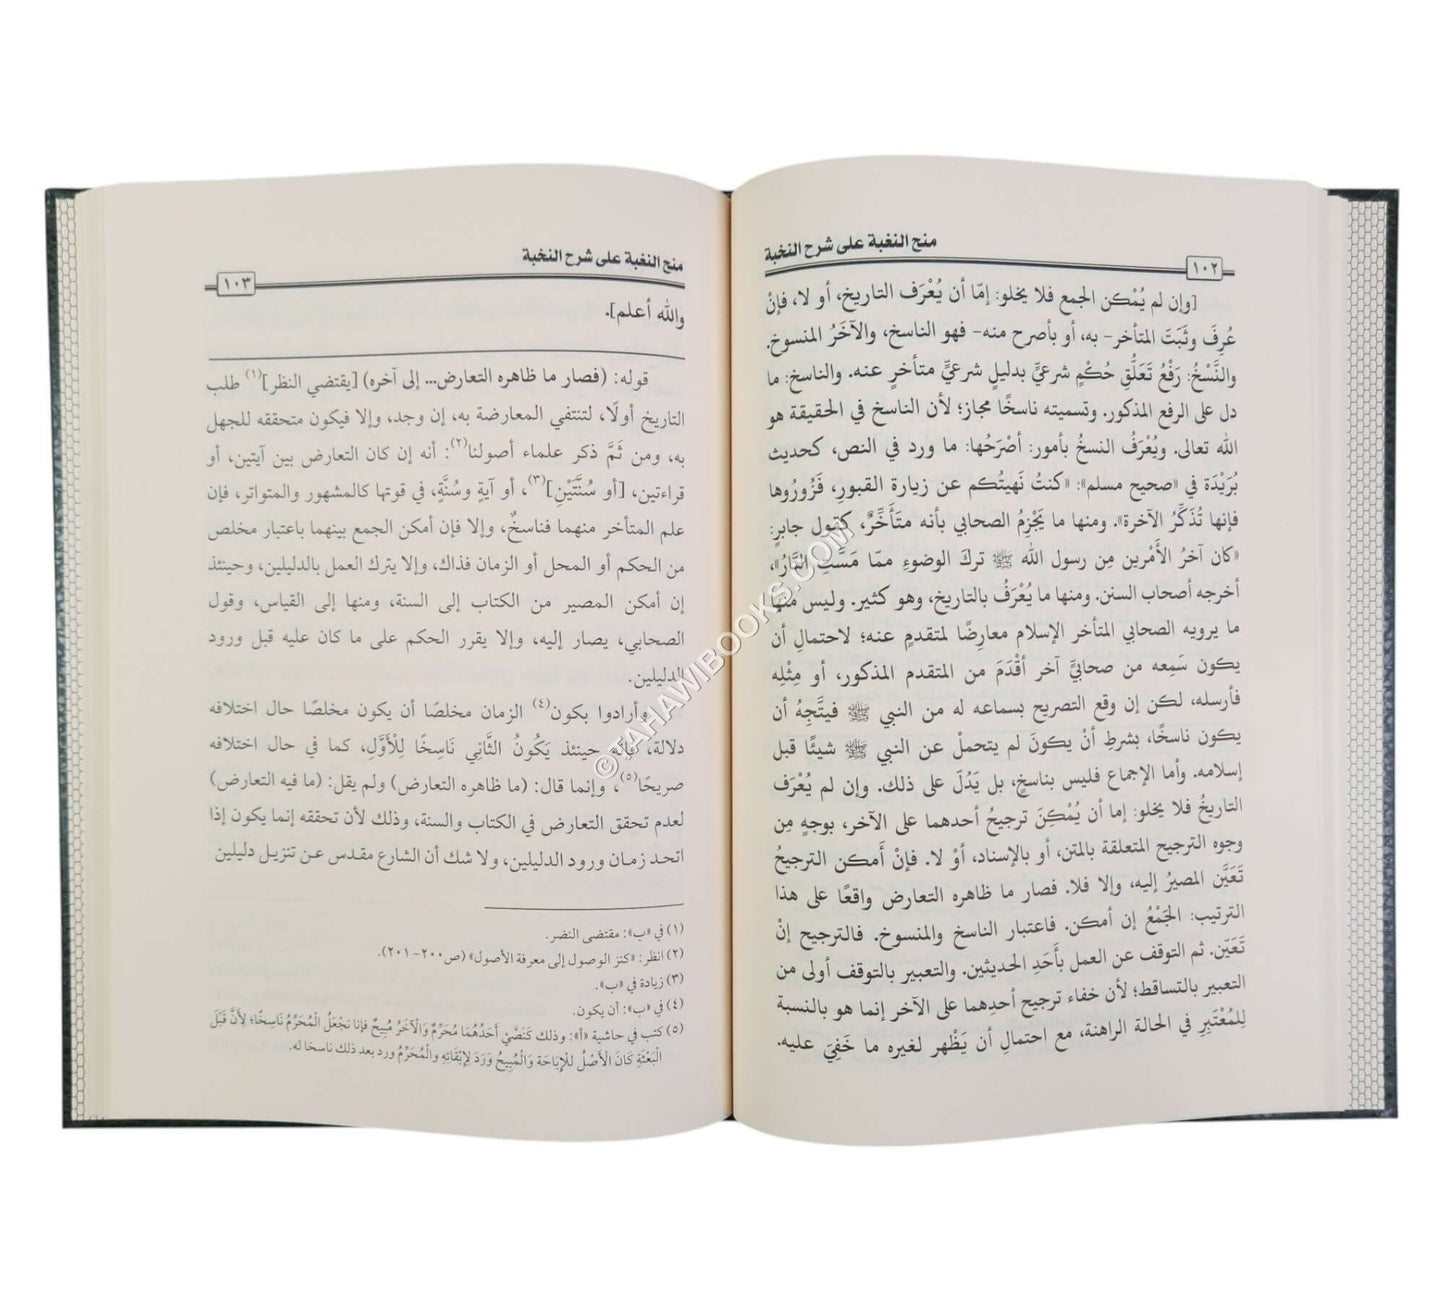 منح النغبة على شرح النخبة
١٠٢
[وإن لم يُمْكن الجمع فلا يخلو: إمّا أن يُعْرَف التاريخ، أو لا، فإنْ
عُرِفَ وثَبَتَ المتأخر- به، أو بأصرح منه- فهو الناسخ، والآخَرُ المنسوخ.
والنَّسْخُ: رَفْعُ تَعَلُّقِ حُكْمٍ شرعيٍّ بدليلٍ شرعيٍّ متأخرٍ عنه. والناسخ: ما
دل على الرفع المذكور. وتسميته ناسخًا مجاز؛ لأن الناسخ في الحقيقة هو
الله تعالى. ويُعْرَفُ النسخُ بأمور: أصْرَحُها: ما ورد في النص، كحديث
بُرَيْدَة في «صحيح مسلم»: «كنتُ نَهيتُكم عن زيارة القبورِ، فَزُورُوها
فإنها تُذَكِّرُ الآخرة». ومنها ما يَجْزِمُ الصحابي بأنه متَأَخِّرٌ، كقول جابرٍ:
«كان آخرُ الأَمْرين مِن رسول الله ﷺ تركَ الوضوءِ ممّا مَسَّتِ النَّارُ»،
أخرجه أصحاب السنن. ومنها ما يُعْرَفُ بالتاريخ، وهو كثير. وليس منها
ما يرويه الصحابي المتأخر الإسلام معارِضًا لمتقدمٍ عنه؛ لاحتمالِ أن
يكون سَمِعه من صحابيٍّ آخر أقْدَمَ من المتقدم المذكور، أو مِثْلِه
فأرسله، لكن إن وقع التصريح بسماعه له من النبي ﷺ فيتَّجِهُ أن
يكون ناسخًا، بشرطِ أنْ يكونَ لم يتحملْ عن النبي ﷺ شيئًا قبل
إسلامه. وأما الإجماع فليس بناسخٍ، بل يَدُلّ على ذلك. وإن لم يُعْرَف
التاريخُ فلا يخلو: إما أن يُمْكِنَ ترجيحُ أحدهما على الآخر، بوجهٍ مِن
وجوه الترجيح المتعلقة بالمتن، أو بالإسناد، أوْ لا. فإنْ أَمكن الترجيحُ
تَعَيَّن المصيرُ إليه، وإلا فلا. فصار ما ظاهره التعارض واقعًا على هذا
الترتيب: الجَمْعُ إن أمكن. فاعتبار الناسخ والمنسوخ. فالترجيح إنْ
تَعَيّن. ثم التوقف عن العمل بأَحَدِ الحديثين. والتعبير بالتوقف أولى من
التعبير بالتساقط؛ لأن خفاء ترجيح أحدهما على الآخر إنما هو بالنسبة
لِلمُعْتَبِرِ في الحالة الراهنة، مع احتمال أن يَظْهر لغيره ما خَفِيَ عليه.
منح النغبة على شرح النخبة
١٠٣
والله أعلم].
قوله: (فصار ما ظاهره التعارض... إلى آخره) [يقتضي النظر](١) طلب
التاريخ أولًا، لتنتفي المعارضة به، إن وجد، وإلا فيكون متحققه للجهل
به، ومن ثَمَّ ذكر علماء أصولنا(٢): أنه إن كان التعارض بين آيتين، أو
قراءتين، [أو سُنَّتَيْنِ](٣)، أو آيةٍ وسُنَّةٍ، في قوتها كالمشهور والمتواتر، فإن
علم المتأخر منهما فناسخٌ، وإلا فإن أمكن الجمع بينهما باعتبار مخلص
من الحكم أو المحل أو الزمان فذاك، وإلا يترك العمل بالدليلين، وحينئذ
إن أمكن المصير من الكتاب إلى السنة، ومنها إلى القياس، وقول
الصحابي، يصار إليه، وإلا يقرر الحكم على ما كان عليه قبل ورود
الدليلين.
وأرادوا بكون(٤) الزمان مخلصًا أن يكون مخلصًا حال اختلافه
دلالة، فإنه حينئذ يَكُونُ الثَّانِي نَاسِخًا لِلْأَوَّلِ، كما في حال اختلافه
صريحًا(٥)، وإنما قال: (ما ظاهره التعارض) ولم يقل: (ما فيه التعارض)
لعدم تحقق التعارض في الكتاب والسنة، وذلك لأن تحققه إنما يكون إذا
اتحد زمان ورود الدليلين، ولا شك أن الشارع مقدس عن تنزيل دليلين
(١) في «ب»: مقتضى النضر.
(٢) انظر: «كنز الوصول إلى معرفة الأصول» (ص٢٠٠-٢٠١).
(٣) زيادة في «ب».
(٤) في «ب»: أن يكون.
(٥) كتب في حاشية «أ»: وذلك كَنَصَّيْ أَحَدُهُمَا مُحَرِّمٌ وَالْآخَرُ مُبِيحٌ فإنا نجْعَلُ الْمُحَرِّمُ نَاسِخًا؛ لِأَنَّ قَبْلَ
الْبَعْثَةِ كَانَ الْأَصْلُ لِلْإِبَاحَة وَالْمُبِيحُ وَرَدَ لِإِبْقَائِهِ والْمُحَرِّمُ ورد بعد ذلك ناسخا له.
© TAHAWIBOOKS.COM